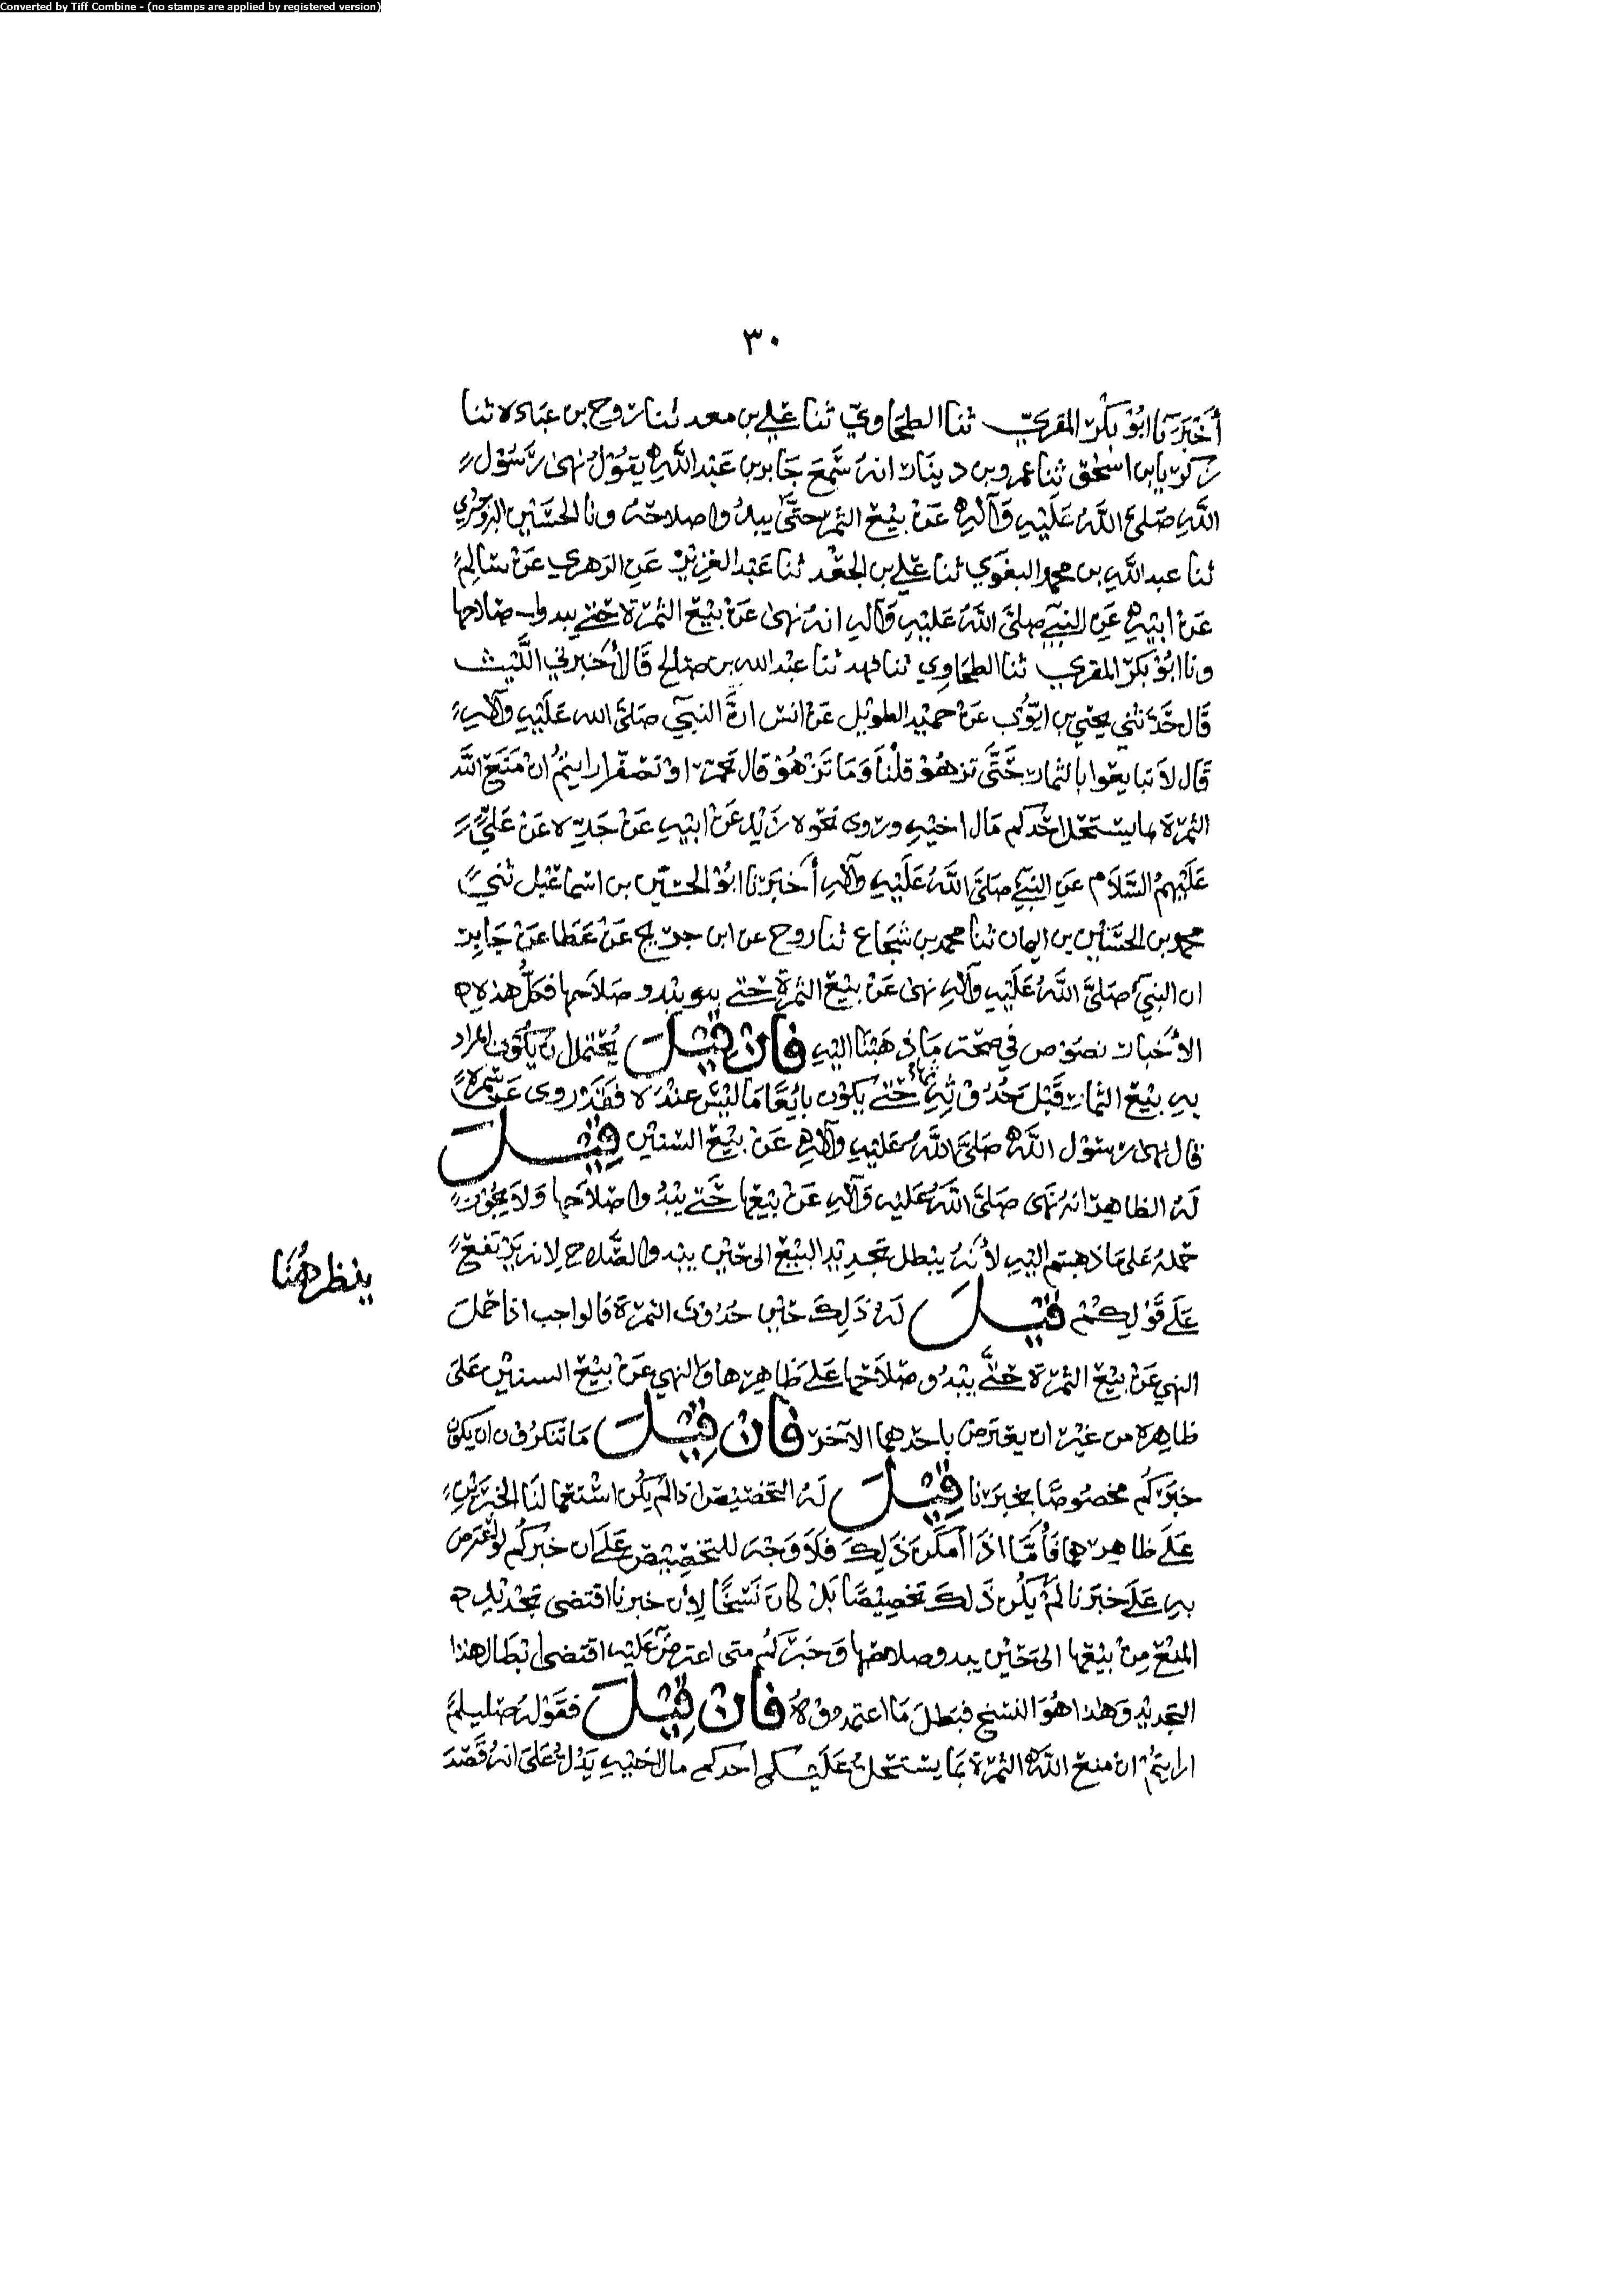 Converted by Tiff Combine - (no stamps are applied by registered version)
٣٠
أخبرنا ابو بكر المقري ثنا الطحاوي ثنا علي بن معبد ثنا روح بن عبادة ثنا
زكريا بن اسحق ثنا عمرو بن دينار انه سمع جابر بن عبد الله يقول نهى رسول
الله صلى الله عليه وآله عن بيع الثمر حتى يبدو اصلاحه ونا الحسين البروجردي
ثنا عبد الله بن محمد البغوي ثنا علي بن الجعد ثنا عبد العزيز عن الزهري عن سالم
عن ابيه عن النبي صلى الله عليه وآله انه نهى عن بيع الثمرة حتى يبدوا صلاحها
ونا ابو بكر المقري ثنا الطحاوي ثنا فهد ثنا عبد الله بن صالح قال أخبرني الليث
قال حدثني يحيى بن ايوب عن حميد الطويل عن انس ان النبي صلى الله عليه وآله
قال لا تبايعوا بالثمار حتى تزهو قلنا وما تزهو قال تحمر او تصفر ارايتم ان منع الله
الثمرة بما يستحل احدكم مال اخيه وروى نحوه زيد عن ابيه عن جده عن علي
عليهم السلام عن النبي صلى الله عليه وآله أخبرنا ابو الحسين بن اسماعيل ثني
محمد بن الحسين بن اليمان ثنا محمد بن شجاع ثنا روح عن ابن جريج عن عطا عن جابر
ان النبي صلى الله عليه وآله نهى عن بيع الثمرة حتى يبدو صلاحها فكل هذه
الأخبار نصوص في صحة ما ذهبنا اليه فان قيل يحتمل ان يكون المراد
به بيع الثمار قبل حدوثها حتى يكون بائعا ما ليس عنده فقد روى عن سمرة
قال نهى رسول الله صلى الله عليه وآله عن بيع السنين قيل
له الظاهر انه نهى صلى الله عليه وآله عن بيعها حتى يبدوا صلاحها ولا يجوز
حمله على ما ذهبتم اليه لأنه يبطل تحديد البيع الى حين يبدوا الصلاح لانه يرتفع
على قولكم قيل له ذلك حين حدوث الثمرة فالواجب اذا حمل
النهي عن بيع الثمرة حتى يبدو صلاحها على ظاهرها والنهي عن بيع السنين على
ظاهره من غير ان يعترض باحدهما الآخر فان قيل ما تنكرون ان يكون
خبركم مخصوصا بخبرنا قيل له التخصيص اذا لم يكن استعمالنا الخبرين
على ظاهرهما فأما اذا أمكن ذلك فلا وجه للتخصيص على ان خبركم لو اعترض
به على خبرنا لم يكن ذلك تخصيصا بل كان نسخا لأن خبرنا اقتضى تحديد
المنع من بيعها الى حين يبدو صلاحها وخبركم متى اعترض عليه اقتضى ابطال هذا
التحديد وهذا هو النسخ فبطل ما اعتمدوه فان قيل فقوله صلى
ارايتم ان منع الله الثمرة بما يستحل احدكم مال اخيه يدل على انه قصد
ينظر هنا